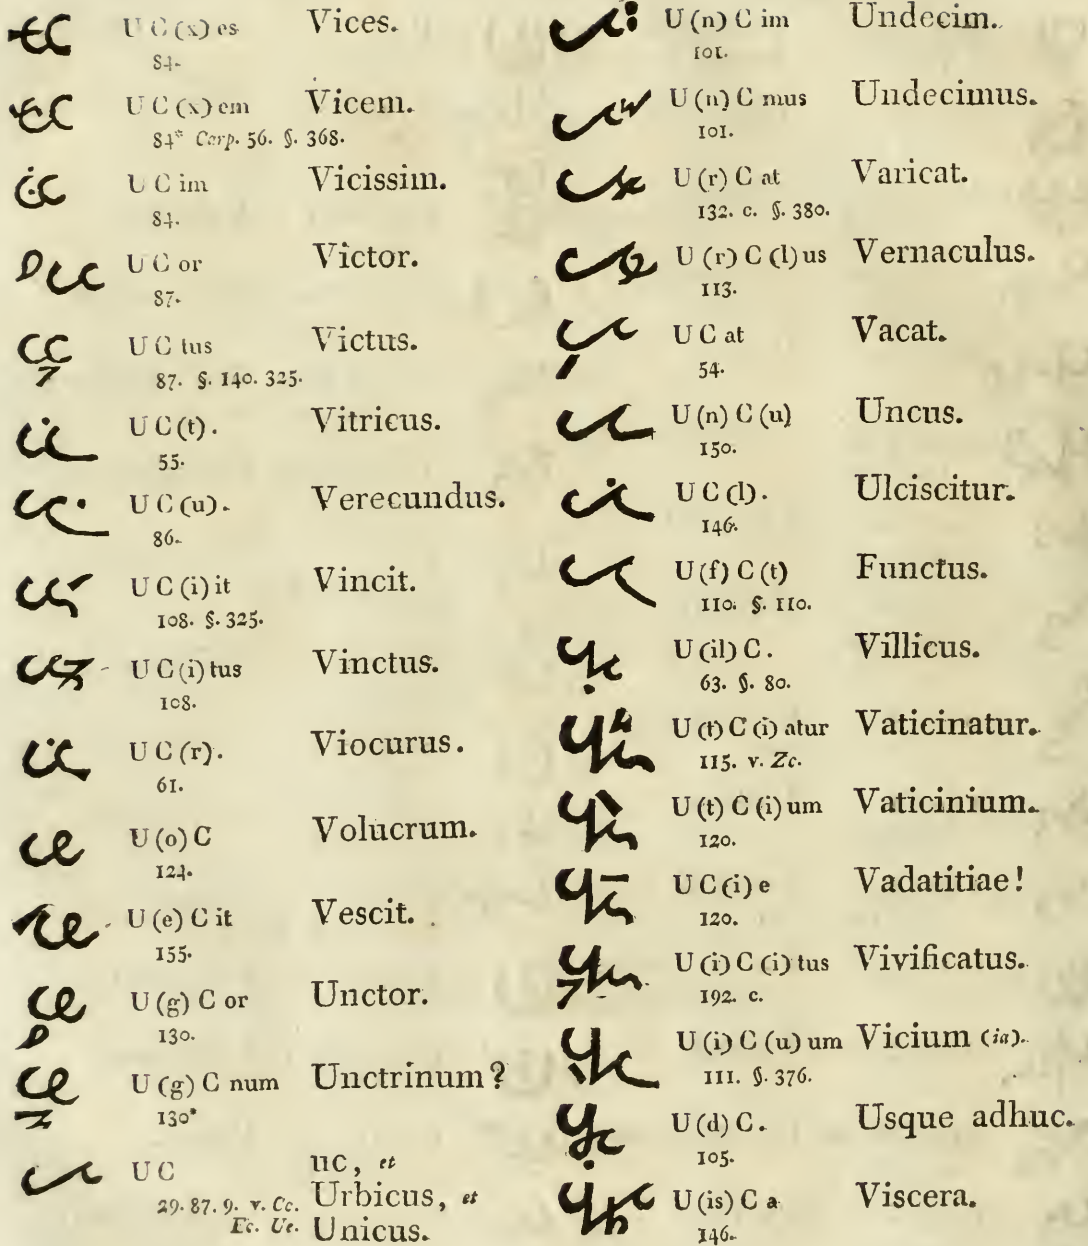 U C (x) es Vices.
84.
U C (x) em Vicem.
84* Carp. 56. §. 368.
U C im Vicissim.
84.
U C or Victor.
87.
U C tus Victus.
87. §. 140. 325.
U C (t). Vitricus.
55.
U C (u). Verecundus.
86.
U C (i) it Vincit.
108. §. 325.
U C (i) tus Vinctus.
108.
U C (r). Viocurus.
61.
U (o) C Volucrum.
124.
U (e) C it Vescit.
155.
U (g) C or Unctor.
130.
U (g) C num Unctrinum?
130*
U C uc, et
29. 87. 9. v. Cc. Urbicus, et
Ec. Ue. Unicus.
U (n) C im Undecim.
101.
U (n) C mus Undecimus.
101.
U (r) C at Varicat.
132. c. §. 380.
U (r) C (l) us Vernaculus.
113.
U C at Vacat.
54.
U (n) C (u) Uncus.
150.
U C (l). Ulciscitur.
146.
U (f) C (t) Functus.
110. §. 110.
U (il) C. Villicus.
63. §. 80.
U (t) C (i) atur Vaticinatur.
115. v. Zc.
U (t) C (i) um Vaticinium.
120.
U C (i) e Vadatitiae!
120.
U (i) C (i) tus Vivificatus.
192. c.
U (i) C (u) um Vicium (ia).
111. §. 376.
U (d) C. Usque adhuc.
105.
U (is) C a Viscera.
146.